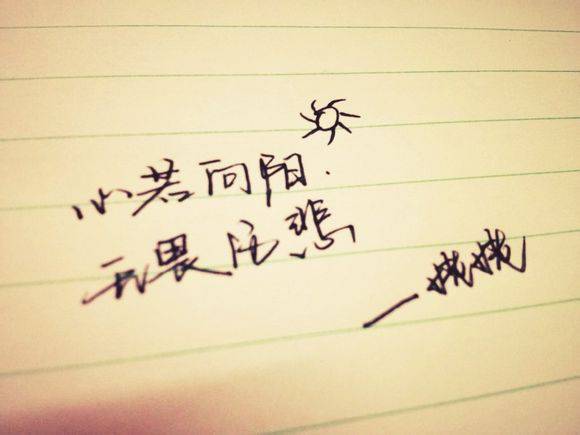 心若向阳.
无畏伤悲